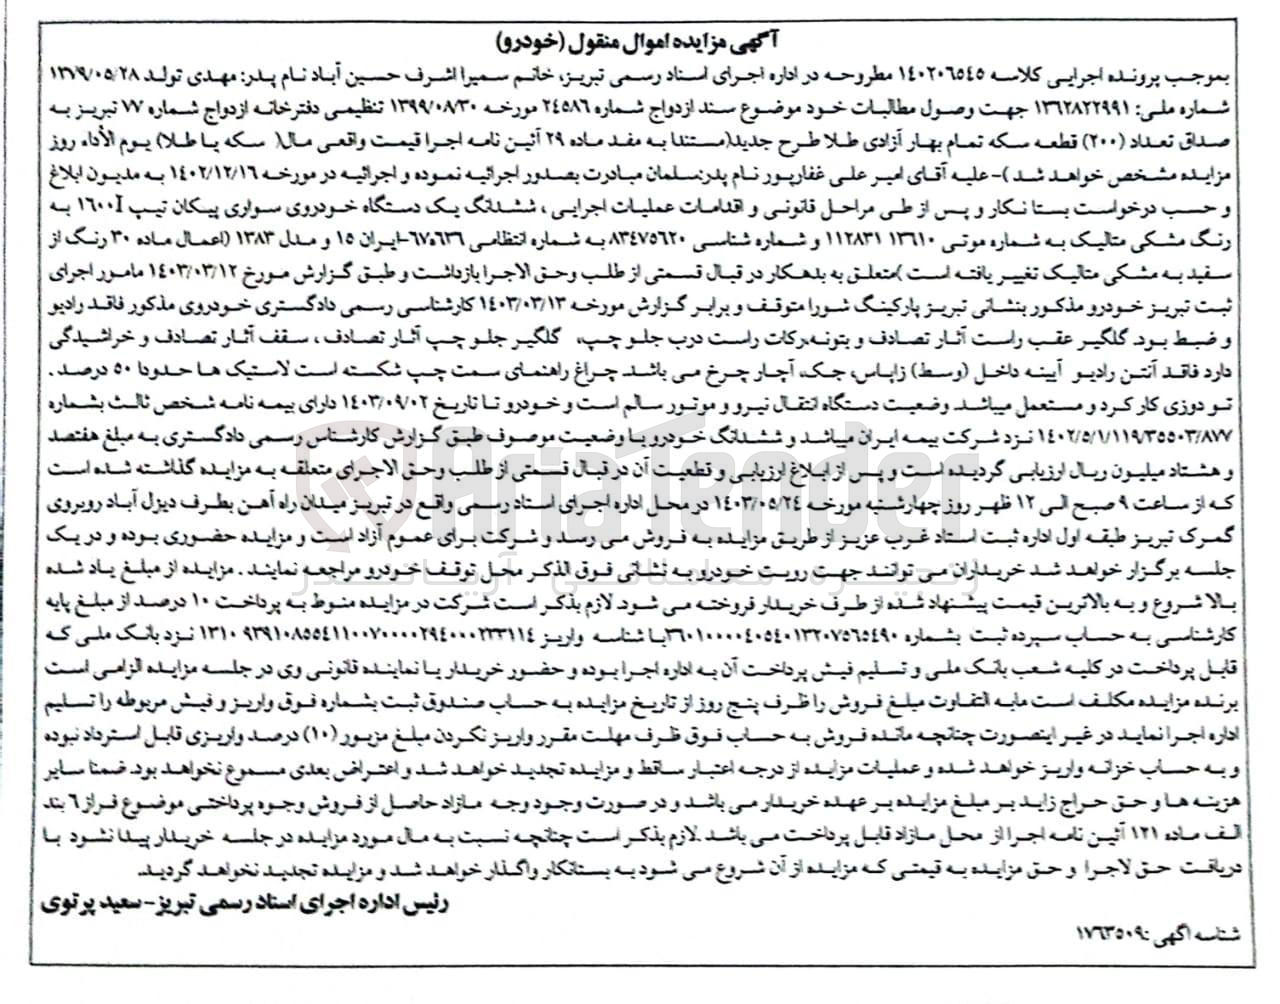 آگهی مزایده اموال منقول (خودرو)
بموجب پرونده اجرایی کلاسه ۱۴۰۲۰۶۵۴۵ مطروحه در اداره اجرای اسناد رسمی تبریز، خانم سمیرا اشرف حسین آباد نام پدر: مهدی تولد ۱۳۷۹/۰۵/۲۸
شماره ملی: ۱۳۶۲۸۲۲۹۹۱ جهت وصول مطالبات خود موضوع سند ازدواج شماره ۲۴۵۸۶ مورخه ۱۳۹۹/۰۸/۳۰ تنظیمی دفترخانه ازدواج شماره ۷۷ تبریز به
صداق تعداد (۲۰۰) قطعه سکه تمام بهار آزادی طلا طرح جدید(مستندا به مفد ماده ۲۹ آئین نامه اجرا قیمت واقعی مال( سکه یا طلا) یوم الأداء روز
مزایده مشخص خواهد شد )- علیه آقای امیر علی غفارپور نام پدر:سلمان مبادرت بصدور اجرائیه نموده و اجرائیه در مورخه ۱۴۰۲/۱۲/۱۶ به مدیون ابلاغ
و حسب درخواست بستا نکار و پس از طی مراحل قانونی و اقدامات عملیات اجرایی ، ششدانگ یک دستگاه خودروی سواری پیکان تیپ ۱۶۰۰I به
رنگ مشکی متالیک به شماره موتی ۱۱۲۸۳۱ ۱۳۶۱۰ و شماره شناسی ۸۳۴۷۵۶۲۰ به شماره انتظامی ۶۷ه۶۳۶-ایران ۱۵ و مدل ۱۳۸۳ (اعمال ماده ۳۰ رنگ از
سفید به مشکی متالیک تغییر یافته است )متعلق به بدهکار در قبال قسمتی از طلب وحق الاجرا بازداشت و طبق گزارش مورخ ۱۴۰۳/۰۳/۱۲ مامور اجرای
ثبت تبریز خودرو مذکور بنشانی تبریز پارکینگ شورا متوقف و برابر گزارش مورخه ۱۴۰۳/۰۳/۱۳ کارشناسی رسمی دادگستری خودروی مذکور فاقد رادیو
و ضبط بود. گلگیر عقب راست آثار تصادف و بتونه،رکات راست درب جلو چپ، گلگیر جلو چپ آثار تصادف ، سقف آثار تصادف و خراشیدگی
دارد فاقد آنتن رادیو آیینه داخل (وسط) زاپاس، جک، آچار چرخ می باشد. چراغ راهنمای سمت چپ شکسته است لاستیک ها حدودا ۵۰ درصد .
تو دوزی کار کرد و مستعمل میباشد. وضعیت دستگاه انتقال نیرو و موتور سالم است و خودرو تا تاریخ ۱۴۰۳/۰۹/۰۲ دارای بیمه نامه شخص ثالث بشماره
۱۴۰۲/۵/۱/۱۱۹/۳۵۵۰۳/۸۷۷ نزد شرکت بیمه ایران میباشد و ششدانگ خودرو با وضعیت موصوف طبق گزارش کارشناس رسمی دادگستری به مبلغ هفتصد
و هشتاد میلیون ریال ارزیابی گردیده است و پس از ابلاغ ارزیابی و قطعیت آن در قبال قسمتی از طلب وحق الاجرای متعلقه به مزایده گذاشته شده است
که از ساعت ۹ صبح الی ۱۲ ظهر روز چهارشنبه مورخه ۱۴۰۳/۰۵/۲۴ در محل اداره اجرای اسناد رسمی واقع در تبریز میدان راه آهن بطرف دیزل آباد روبروی
گمرک تبریز طبقه اول اداره ثبت اسناد غرب عزیز از طریق مزایده به فروش می رسد و شرکت برای عموم آزاد است و مزایده حضوری بوده و در یک
جلسه برگزار خواهد شد خریداران می توانند جهت رویت خودرو به نشانی فوق الذکر محل توقف خودرو مراجعه نمایند . مزایده از مبلغ یاد شده
بالا شروع و به بالاترین قیمت پیشنهاد شده از طرف خریدار فروخته می شود. لازم بذکر است شرکت در مزایده منوط به پرداخت ۱۰ درصد از مبلغ پایه
کارشناسی به حساب سپرده ثبت بشماره ۳۶۰۱۰۰۰۰۴۰۵۴۰۱۳۲۰۷۵۶۵۴۹۰با شناسه واریز ۱۳۱۰ ۹۳۹۱۰۸۵۵۴۱۱۰۰۷۰۰۰۰۲۹۴۰۰۰۲۳۳۱۱۴ نزد بانک ملی که
قابل پرداخت در کلیه شعب بانک ملی و تسلیم فیش پرداخت آن به اداره اجرا بوده و حضور خریدار یا نماینده قانونی وی در جلسه مزایده الزامی است
برنده مزایده مکلف است مابه التفاوت مبلغ فروش را ظرف پنج روز از تاریخ مزایده به حساب صندوق ثبت بشماره فوق واریز و فیش مربوطه را تسلیم
اداره اجرا نماید در غیر اینصورت چنانچه مانده فروش به حساب فوق ظرف مهلت مقرر واریز نکردن مبلغ مزبور (۱۰) درصد واریزی قابل استرداد نبوده
و به حساب خزانه واریز خواهد شده و عملیات مزایده از درجه اعتبار ساقط و مزایده تجدید خواهد شد و اعتراض بعدی مسموع نخواهد بود. ضمنا سایر
هزینه ها و حق حراج زاید بر مبلغ مزایده بر عهده خریدار می باشد و در صورت وجود وجه مازاد حاصل از فروش وجوه پرداختی موضوع فراز ۶ بند
الف ماده ۱۲۱ آئین نامه اجرا از محل مازاد قابل پرداخت می باشد .لازم بذکر است چنانچه نسبت به مال مورد مزایده در جلسه خریدار پیدا نشود با
دریافت حق لاجرا و حق مزایده به قیمتی که مزایده از آن شروع می شود به بستانکار واگذار خواهد شد و مزایده تجدید نخواهد گردید.
رئیس اداره اجرای اسناد رسمی تبریز- سعید پرتوی
شناسه آگهی :۱۷۶۳۵۰۹
AriaTender